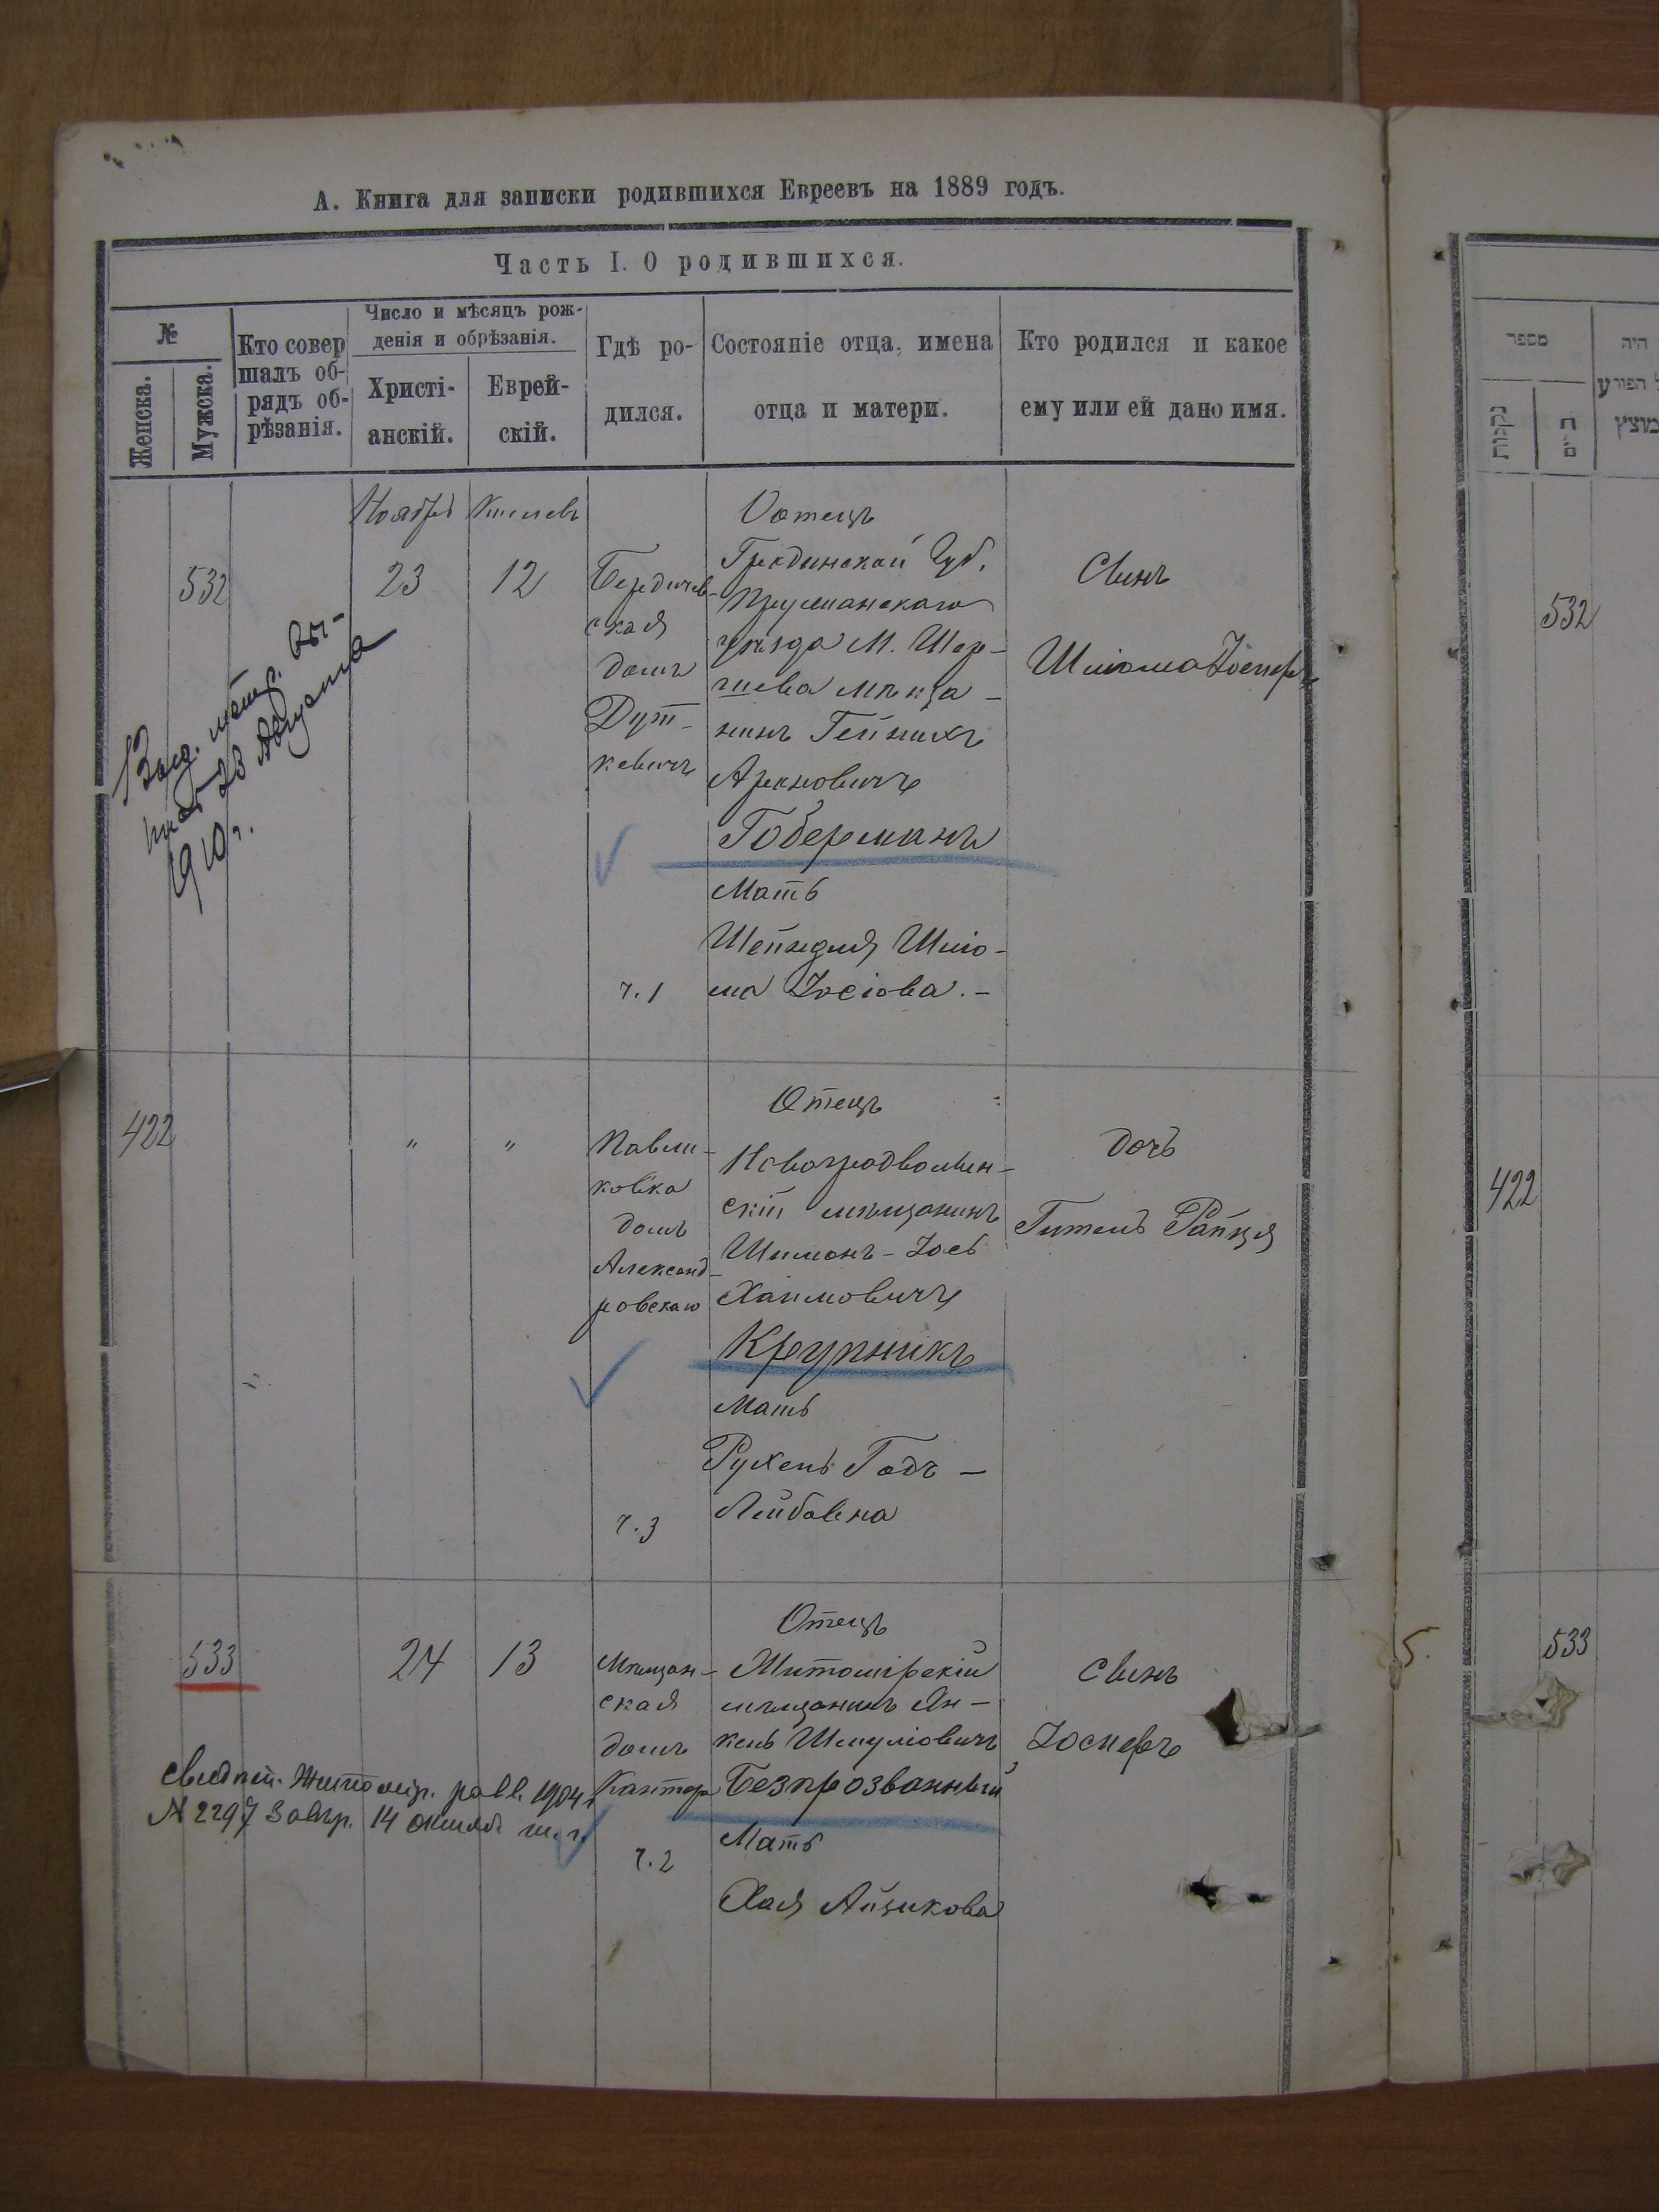 А. Книга для записки родившихся Евреевъ на 1889 годъ.
Часть I. О родившихся.
№
Женска.
Мужска.
Кто совер
шалъ об-
рядъ об-
рѣзанія.
Число и мѣсяцъ рож-
денія и обрѣзанія.
Христі-
анскій.
Еврей-
скій.
Гдѣ ро-
дился.
Состояніе отца, имена
отца и матери.
Кто родился и какое
ему или ей дано имя.
532
Ноябрь
23
Кислевъ
12
Бердичев-
ская
домъ
Дут-
кевичъ
ч. 1
Отецъ
Гродненской Губ.
Пружанскаго
уѣзда М. Шер-
шева мѣща-
нинъ
Ароновичъ
Гоберманъ
Мать
Шейндля Шліо-
ма Іосіова. -
Сынъ
Шліома Іосиферъ
Выд. метр. вы-
23 Августа
1910 г.
422
"
"
Павли-
ковка
домъ
Александ-
ровскаго
ч. 3
Отецъ
Новоградволын-
скій мѣщанинъ
Шимонъ-Іось
Хаимовичъ
Крупникъ
Мать
Рухель Годъ-
Лейбовна
дочь
Гитель Райця
533
24
13
Мѣщан-
ская
домъ
Кантор
ч. 2
Отецъ
Житомірскій
мѣщанинъ Ян-
кель Шмуліовичъ
Безпрозванный
Мать
Хая Айзикова
сынъ
Іосиферъ
свидѣт. Житомір. равв. 1904 г.
№ 2297 завѣр. 14 октяб. т. г.
מספר
נקבות
היה
מוצץ
532
422
533
5.